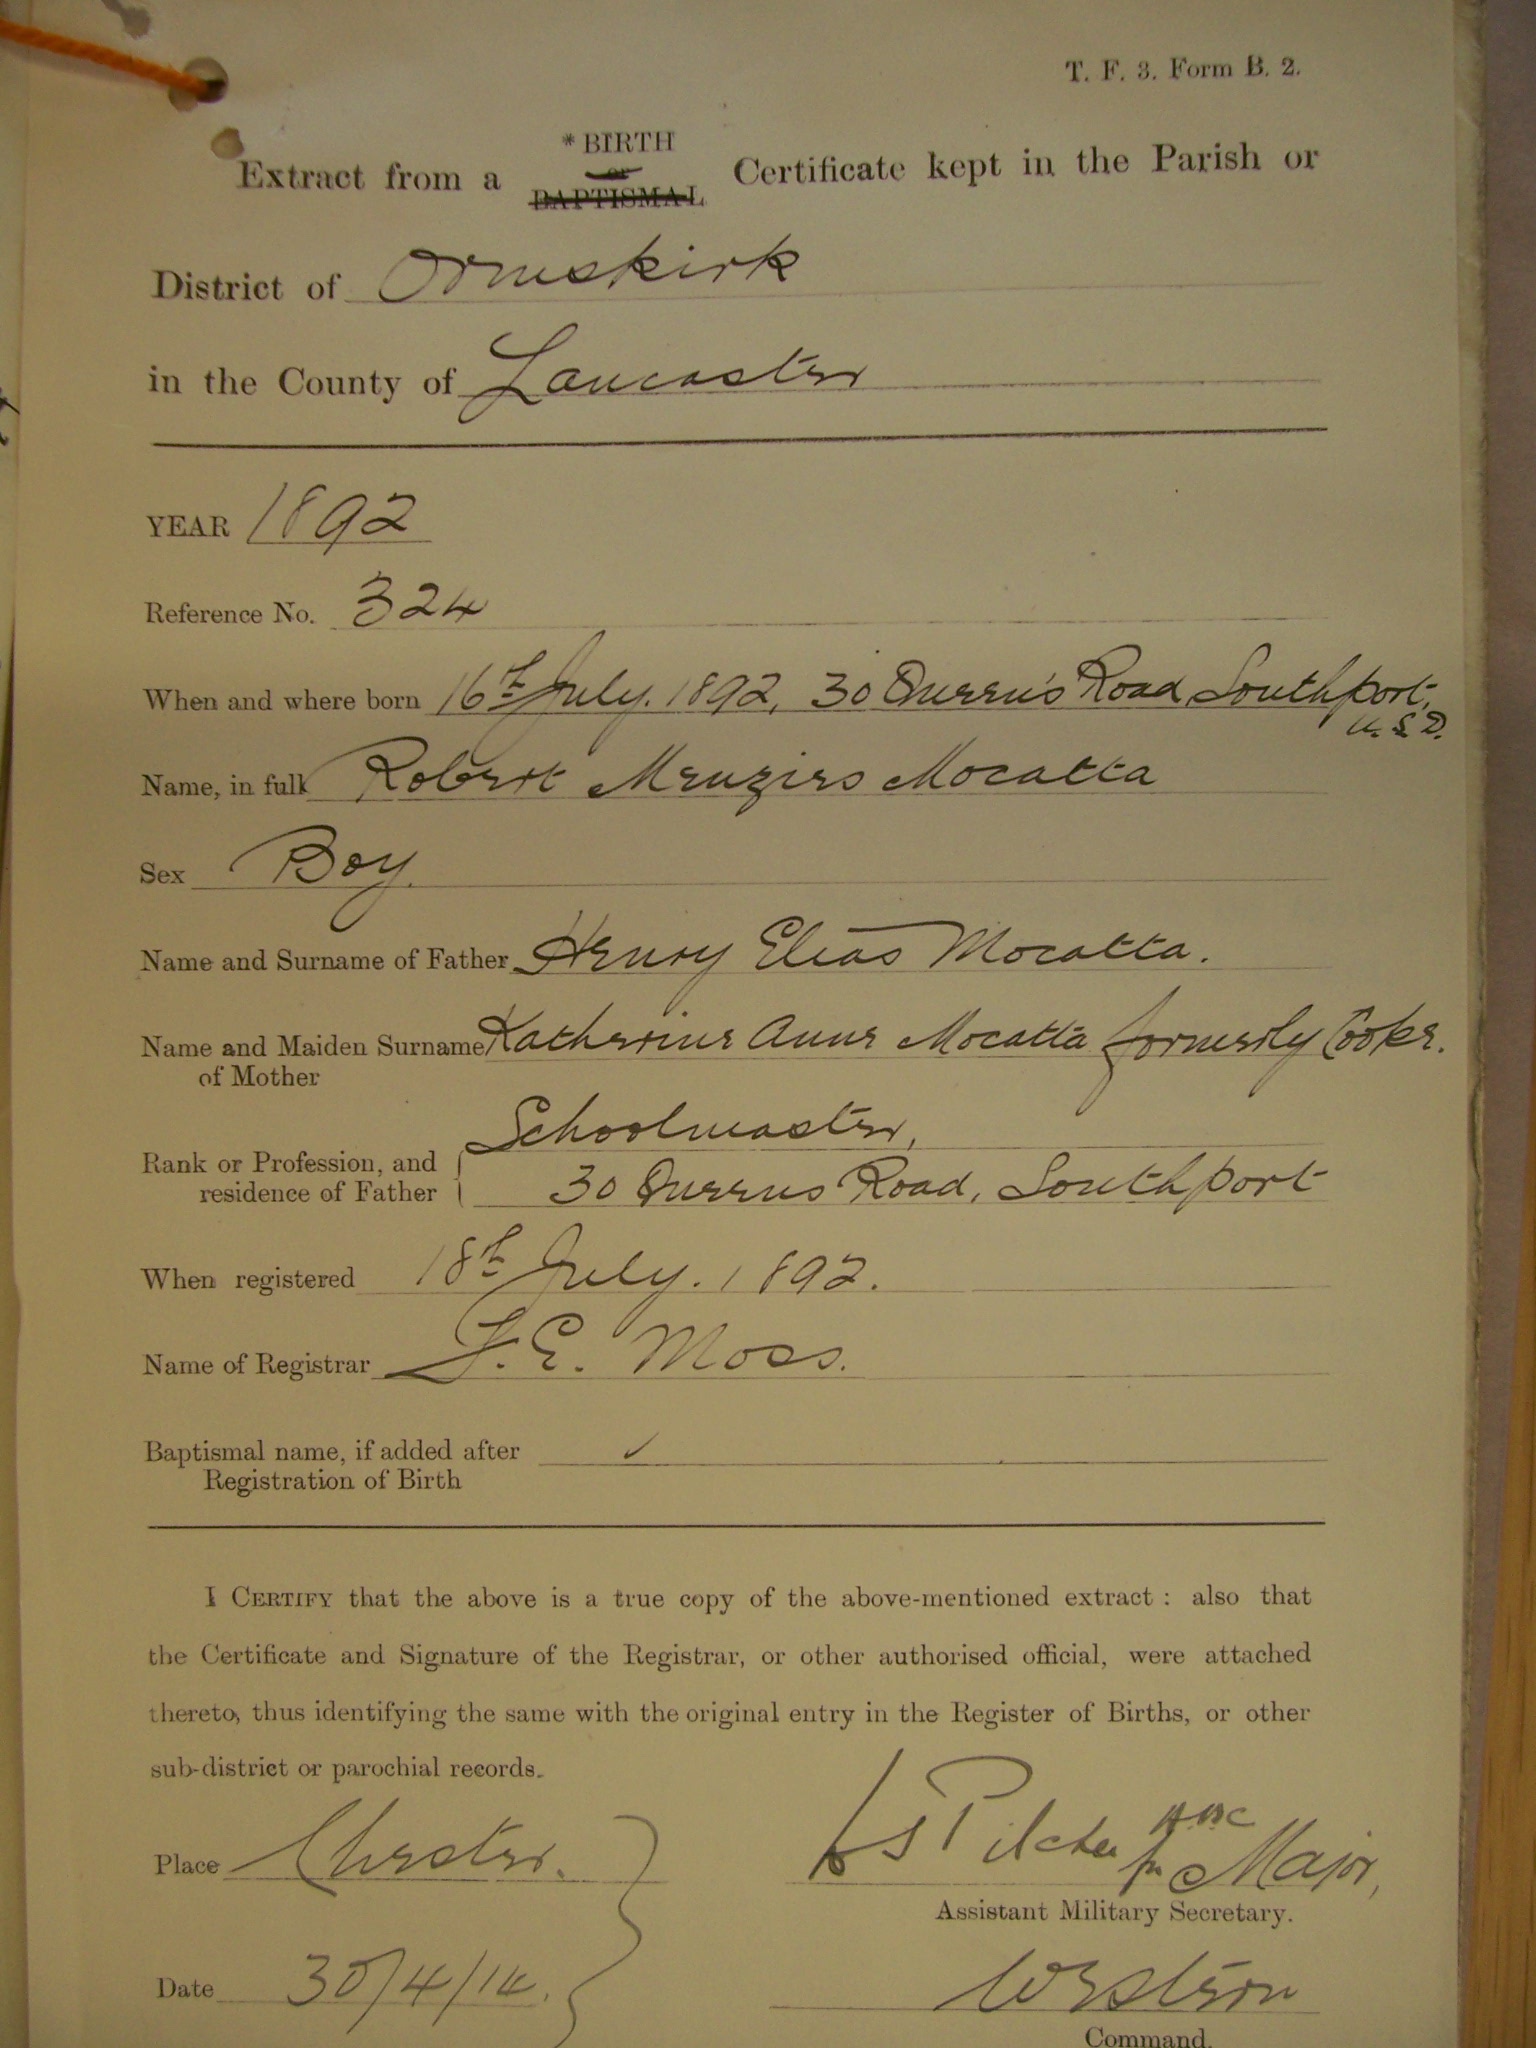 T. F. 3. Form B. 2.
*BIRTH
or
BAPTISMAL
Extract from a Certificate kept in the Parish or
District of Ormskirk
in the County of Lancaster
YEAR 1892
Reference No. 324
When and where born 16th July. 1892, 30 Queen's Road Southport,
U. S. D.
Name, in full Robert Menzies Mocatta
Sex Boy.
Name and Surname of Father Henry Elias Mocatta.
Name and Maiden Surname Katherine Anne Mocatta formerly Cooke.
of Mother
Schoolmaster,
Rank or Profession, and
residence of Father 30 Queens Road, Southport
When registered 18th July. 1892.
Name of Registrar F. E. Moss.
Baptismal name, if added after
Registration of Birth
I CERTIFY that the above is a true copy of the above-mentioned extract : also that
the Certificate and Signature of the Registrar, or other authorised official, were attached
thereto, thus identifying the same with the original entry in the Register of Births, or other
sub-district or parochial records.
Place Chester.
Pilcher for Major,
Assistant Military Secretary.
Date 30/4/14.
Western
Command.